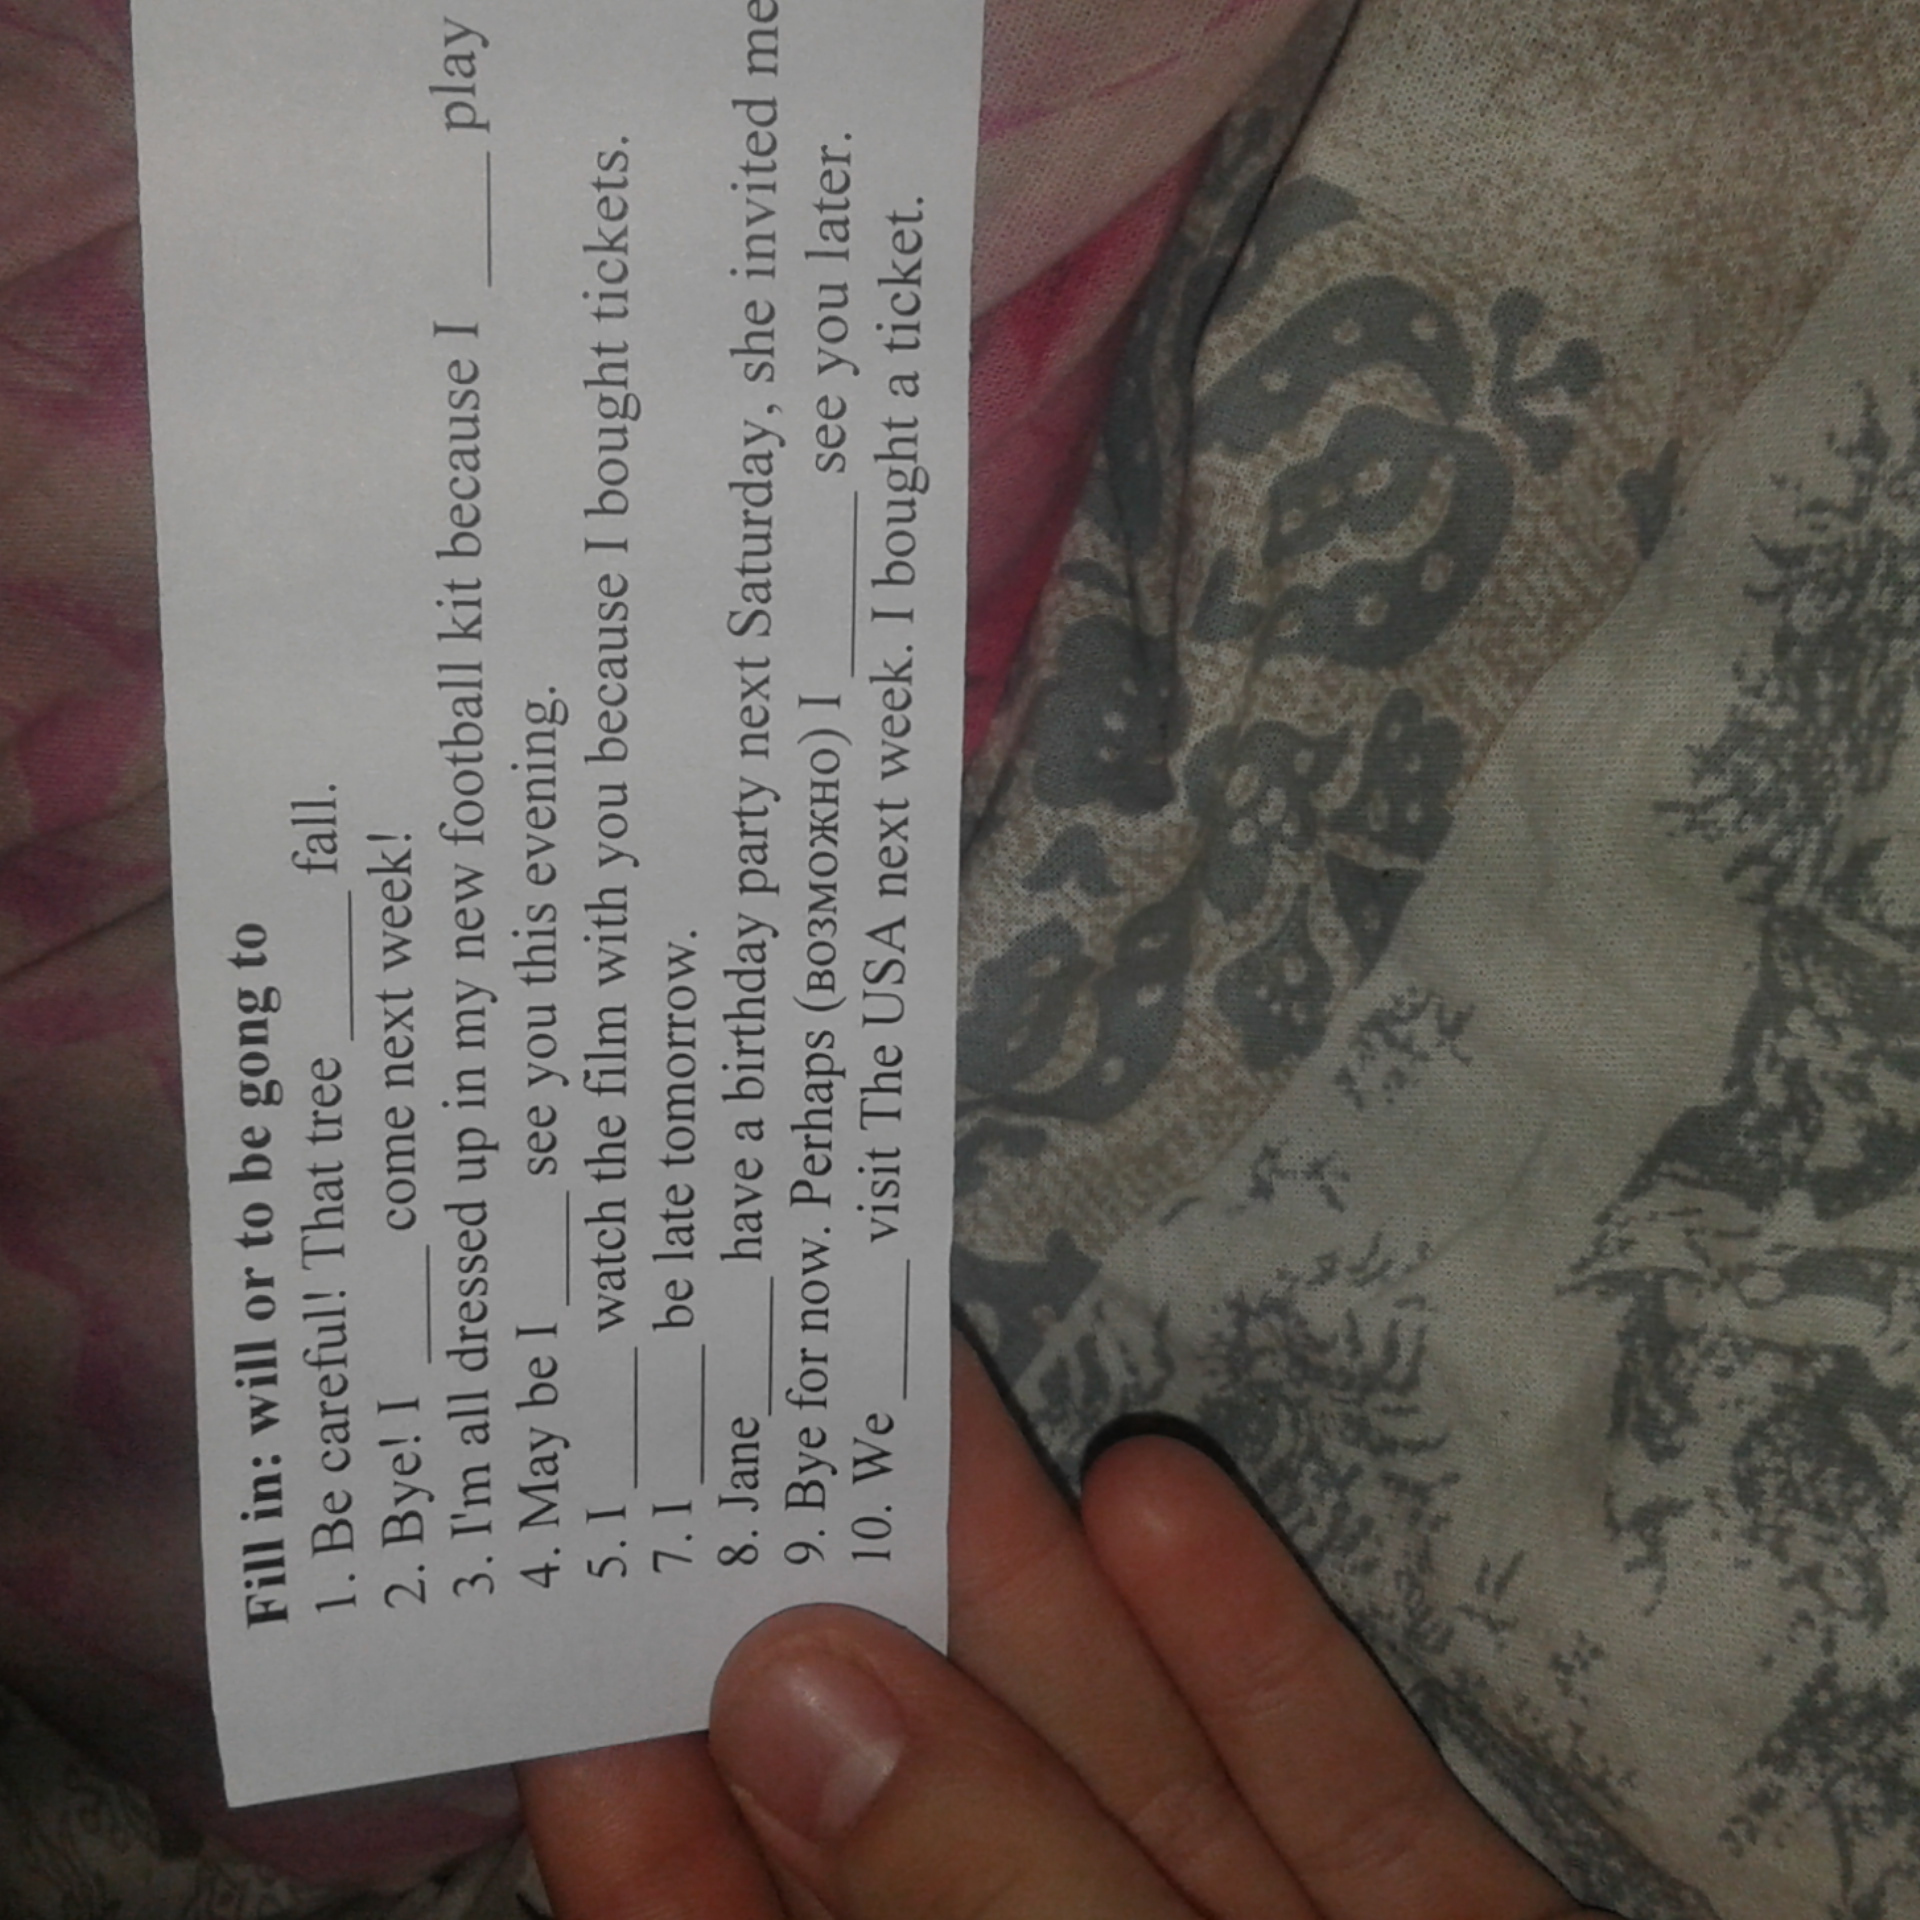 Fill in: will or to be gong to
1. Be careful! That tree _____ fall.
2. Bye! I ____ come next week!
3. I'm all dressed up in my new football kit because I ____ play
4. May be I ____ see you this evening.
5. I _____ watch the film with you because I bought tickets.
7. I _____ be late tomorrow.
8. Jane_____ have a birthday party next Saturday, she invited me
9. Bye for now. Perhaps (возможно) I ______ see you later.
10. We _____ visit The USA next week. I bought a ticket.